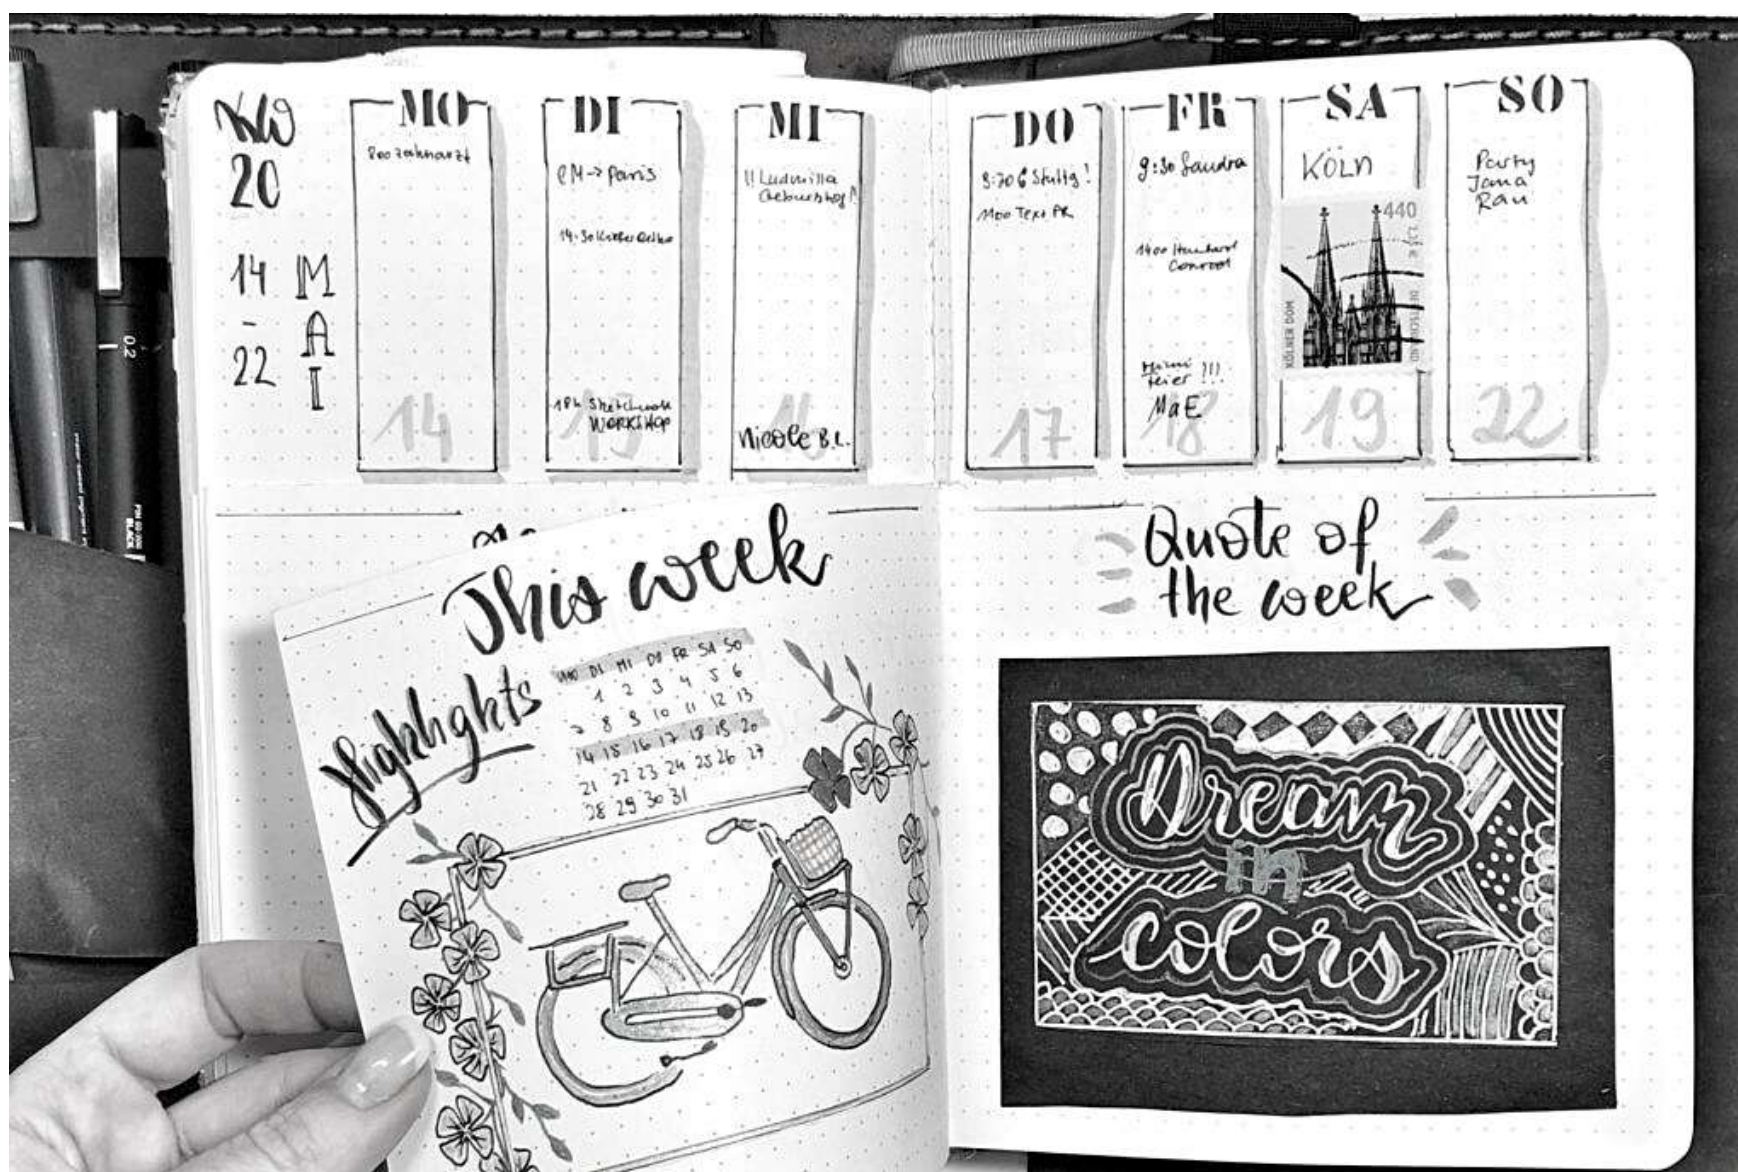 KW
20
14
-
22
MAI
MO
800 Zahnarzt
14
DI
EM -> Paris
14:30
18h Sketchnote
WORKSHOP
15
MI
!! Ludmilla
Geburtstag!!
Nicole B.L.
16
DO
Stuttg!
1100 Text PR
17
FR
9:30 Sandra
1400
Conrad
feier !!!
MaE
18
SA
KÖLN
440
KÖLNER DOM
DEUTSCHLAND
19
SO
Party
Jana
Ran
22
This week
Highlights
MO DI MI DO FR SA SO
1 2 3 4 5 6
7 8 9 10 11 12 13
14 15 16 17 18 19 20
21 22 23 24 25 26 27
28 29 30 31
Quote of
the week
Dream
in
colors
0.2
BLACK